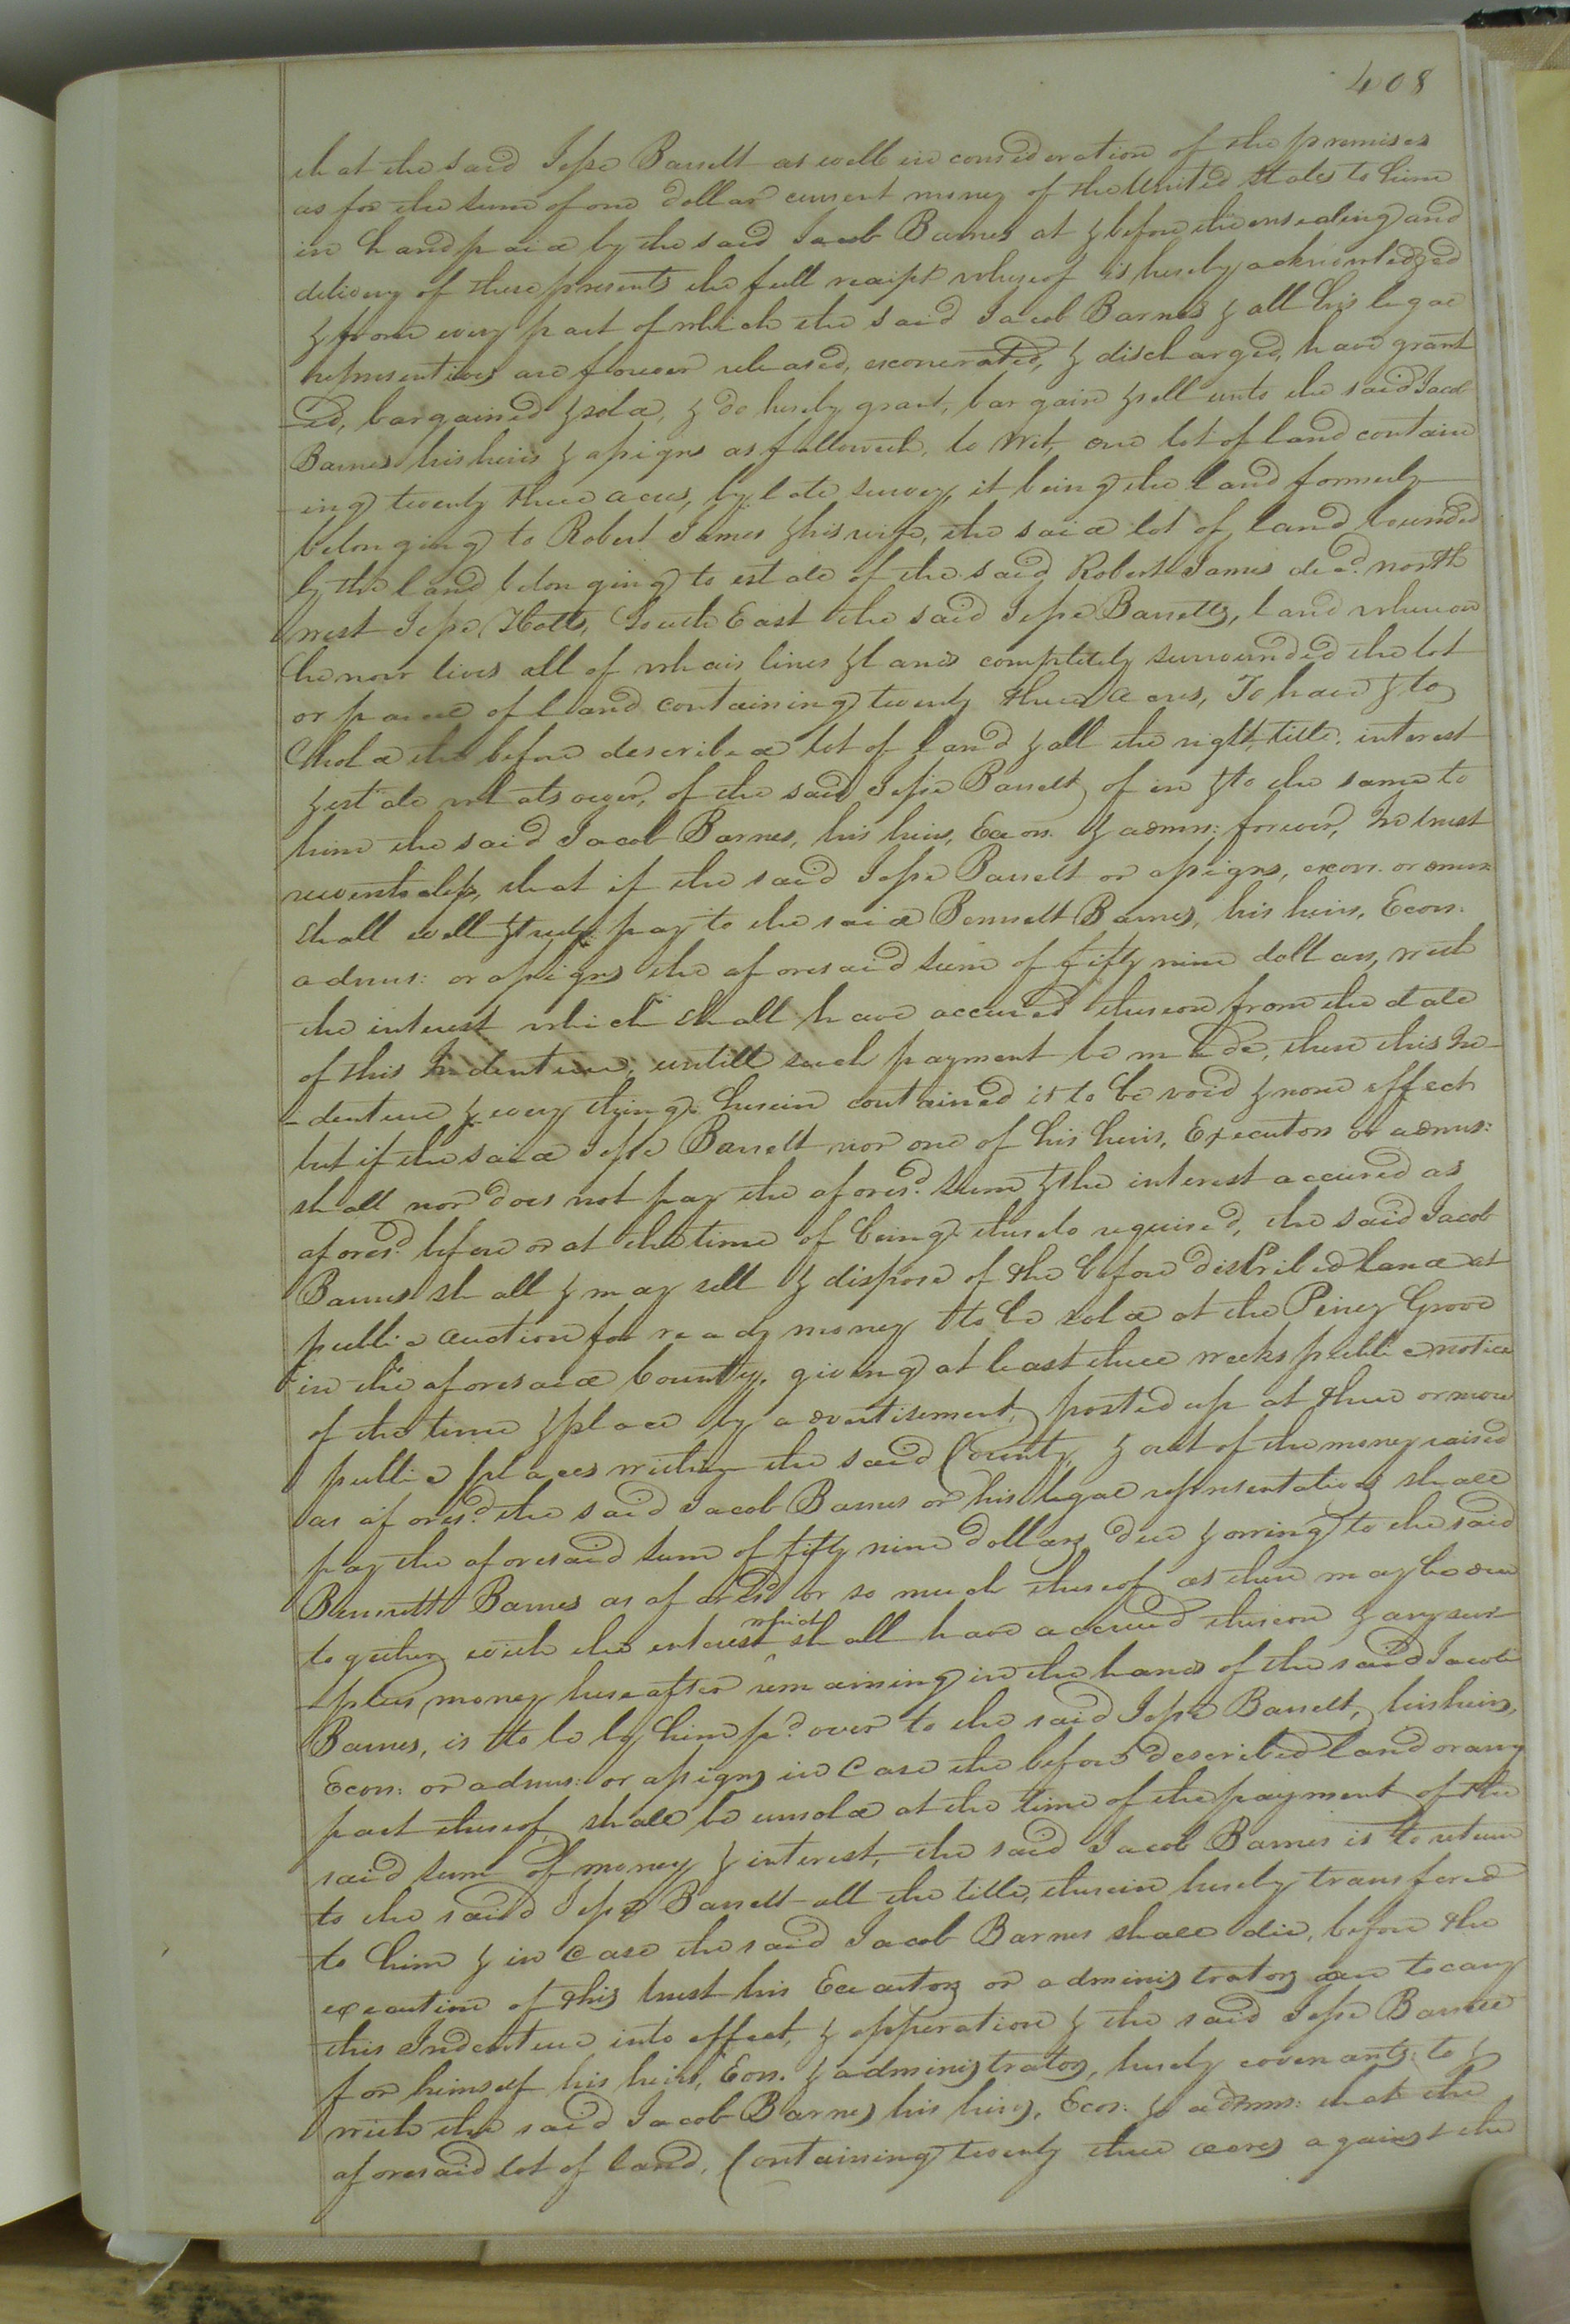 408
that the said Jesse Barrett as well in consideration of the premises
as for the sum of one dollar current money of the United States to him
in hand paid by the said Jacob Barnes at & before the ensealing and
delivery of these presents the full receipt whereof is hereby acknowledged
& from every part of which the said Jacob Barnes & all his legal
representives are forever released, exonerated, & discharged, have grant
-ed, bargained & sold, & do hereby grant, bargain & sell unto the said Jacob
Barnes his heirs & assigns as followeth, to Wit, one lot of land contain
-ing twenty three acres, by late survey, it being the land formerly
belonging to Robert James & his wife, the said lot of land bounded
by the land belonging to estate of the said Robert James decd. north
west Jesse Holts, South East the said Jesse Barretts, land whereon
he now lives all of whais lines & lands completely surrounded the lot
or parcel of land containing twenty three Acres, To have & to
hold the before described lot of land & all the right, title, interest
& estate whatsoever, of the said Jesse Barrett of in & to the same to
him the said Jacob Barnes, his heirs, Exors. & admrs: forever, In trust
nevertheless, that if the said Jesse Barrett or assigns, exors. or admrs
shall well & truly pay to the said Bennett Barnes, his heirs, Exors.
admrs: or assigns the aforesaid sum of fifty nine dollars, with
the interest which shall have accured thereon from the date
of this Indenture, untill such payment be made, then this In-
-denture & every thing herein contained is to be void & none effect
but if the said Jesse Barrett nor one of his heirs, Executors or admrs:
shall nor does not pay the aforesd. sum & the interest accured as
aforesd. before or at the time of being thereto required, the said Jacob
Barnes shall & may sell & dispose of the before distribed land at
public auction for ready money to be sold at the Piney Grove
in the aforesaid County, giving at least three weeks public notice
of the time & place by advertisement, posted up at three or more
public places within the said County, & out of the money raised
as aforesd. the said Jacob Barnes or his legal representatives shall
pay the aforesaid sum of fifty nine dollars due & owring to the said
Bennett Barnes as aforesd or so much thereof as there may be due
together with the interest which shall have accrued thereon & any sur-
-plus, money hereafter remaining in the hands of the said Jacob
Barnes, is to be by him pd. over to the said Jesse Barrett, his heirs,
Exors: or admrs: or assigns in Case the before described land or any
part thereof, shall be unsold at the time of the payment of the
said sum of money & interest, the said Jacob Barnes is to return
to the said Jesse Barrett all the title, therein hereby transfered
to him & in case the said Jacob Barnes shall die, before the
execution of this trust his Executors or administrators are to cary
this Indenture into effect, & opperation & the said Jesse Barrett
for himself his heirs, Exors. & administrators, hereby covenants to &
with the said Jacob Barnes his heirs, Exors: & admrs: that the
aforesaid lot of land, Containing twenty three acres against the